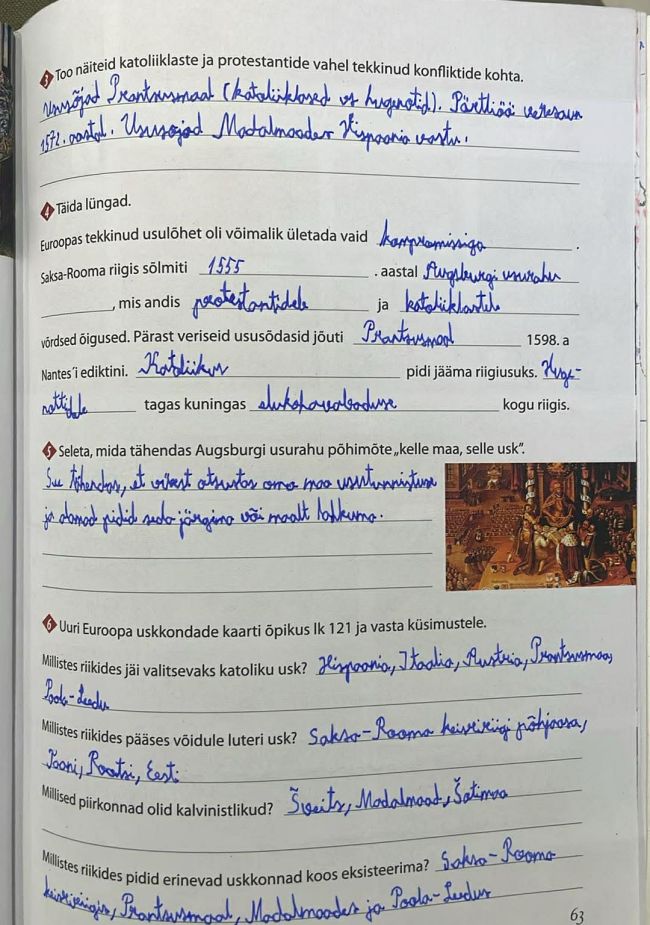 3 Too näiteid katoliiklaste ja protestantide vahel tekkinud konfliktide kohta.
Ususõjad Prantsusmaal (katoliiklased vs hugenotid). Pärtliöö veresaun
1572. aastal. Ususojad Madalmaades Hispaania vastu.
4 Täida lüngad.
Euroopas tekkinud usulõhet oli võimalik ületada vaid kompromissiga .
Saksa-Rooma riigis sõlmiti 1555 . aastal Augsburgi usurahu
, mis andis protestantidele ja katoliiklastele
võrdsed õigused. Pärast veriseid ususõdasid jõuti Prantsusmaal 1598. a
Nantes´i ediktini. Katoliiklus pidi jääma riigiusuks. Huge-
nottidele tagas kuningas elukohavabaduse kogu riigis.
5 Seleta, mida tähendas Augsburgi usurahu põhimõte „kelle maa, selle usk".
See tähendas, et vürst otsustas oma maa usutunnistuse
ja alamad pidid seda järgima või maalt lahkuma.
6 Uuri Euroopa uskkondade kaarti õpikus lk 121 ja vasta küsimustele.
Millistes riikides jäi valitsevaks katoliku usk? Hispaania, Itaalia, Austria, Prantsusmaa,
Poola-Leedu
Millistes riikides pääses võidule luteri usk? Saksa-Rooma keisririigi põhjaosa,
Taani, Rootsi, Eesti
Millised piirkonnad olid kalvinistlikud? Šveits, Madalmaad, Šotimaa
Millistes riikides pidid erinevad uskkonnad koos eksisteerima? Saksa-Rooma
keisririigis, Prantsusmaal, Madalmaades ja Poola-Leedus
63